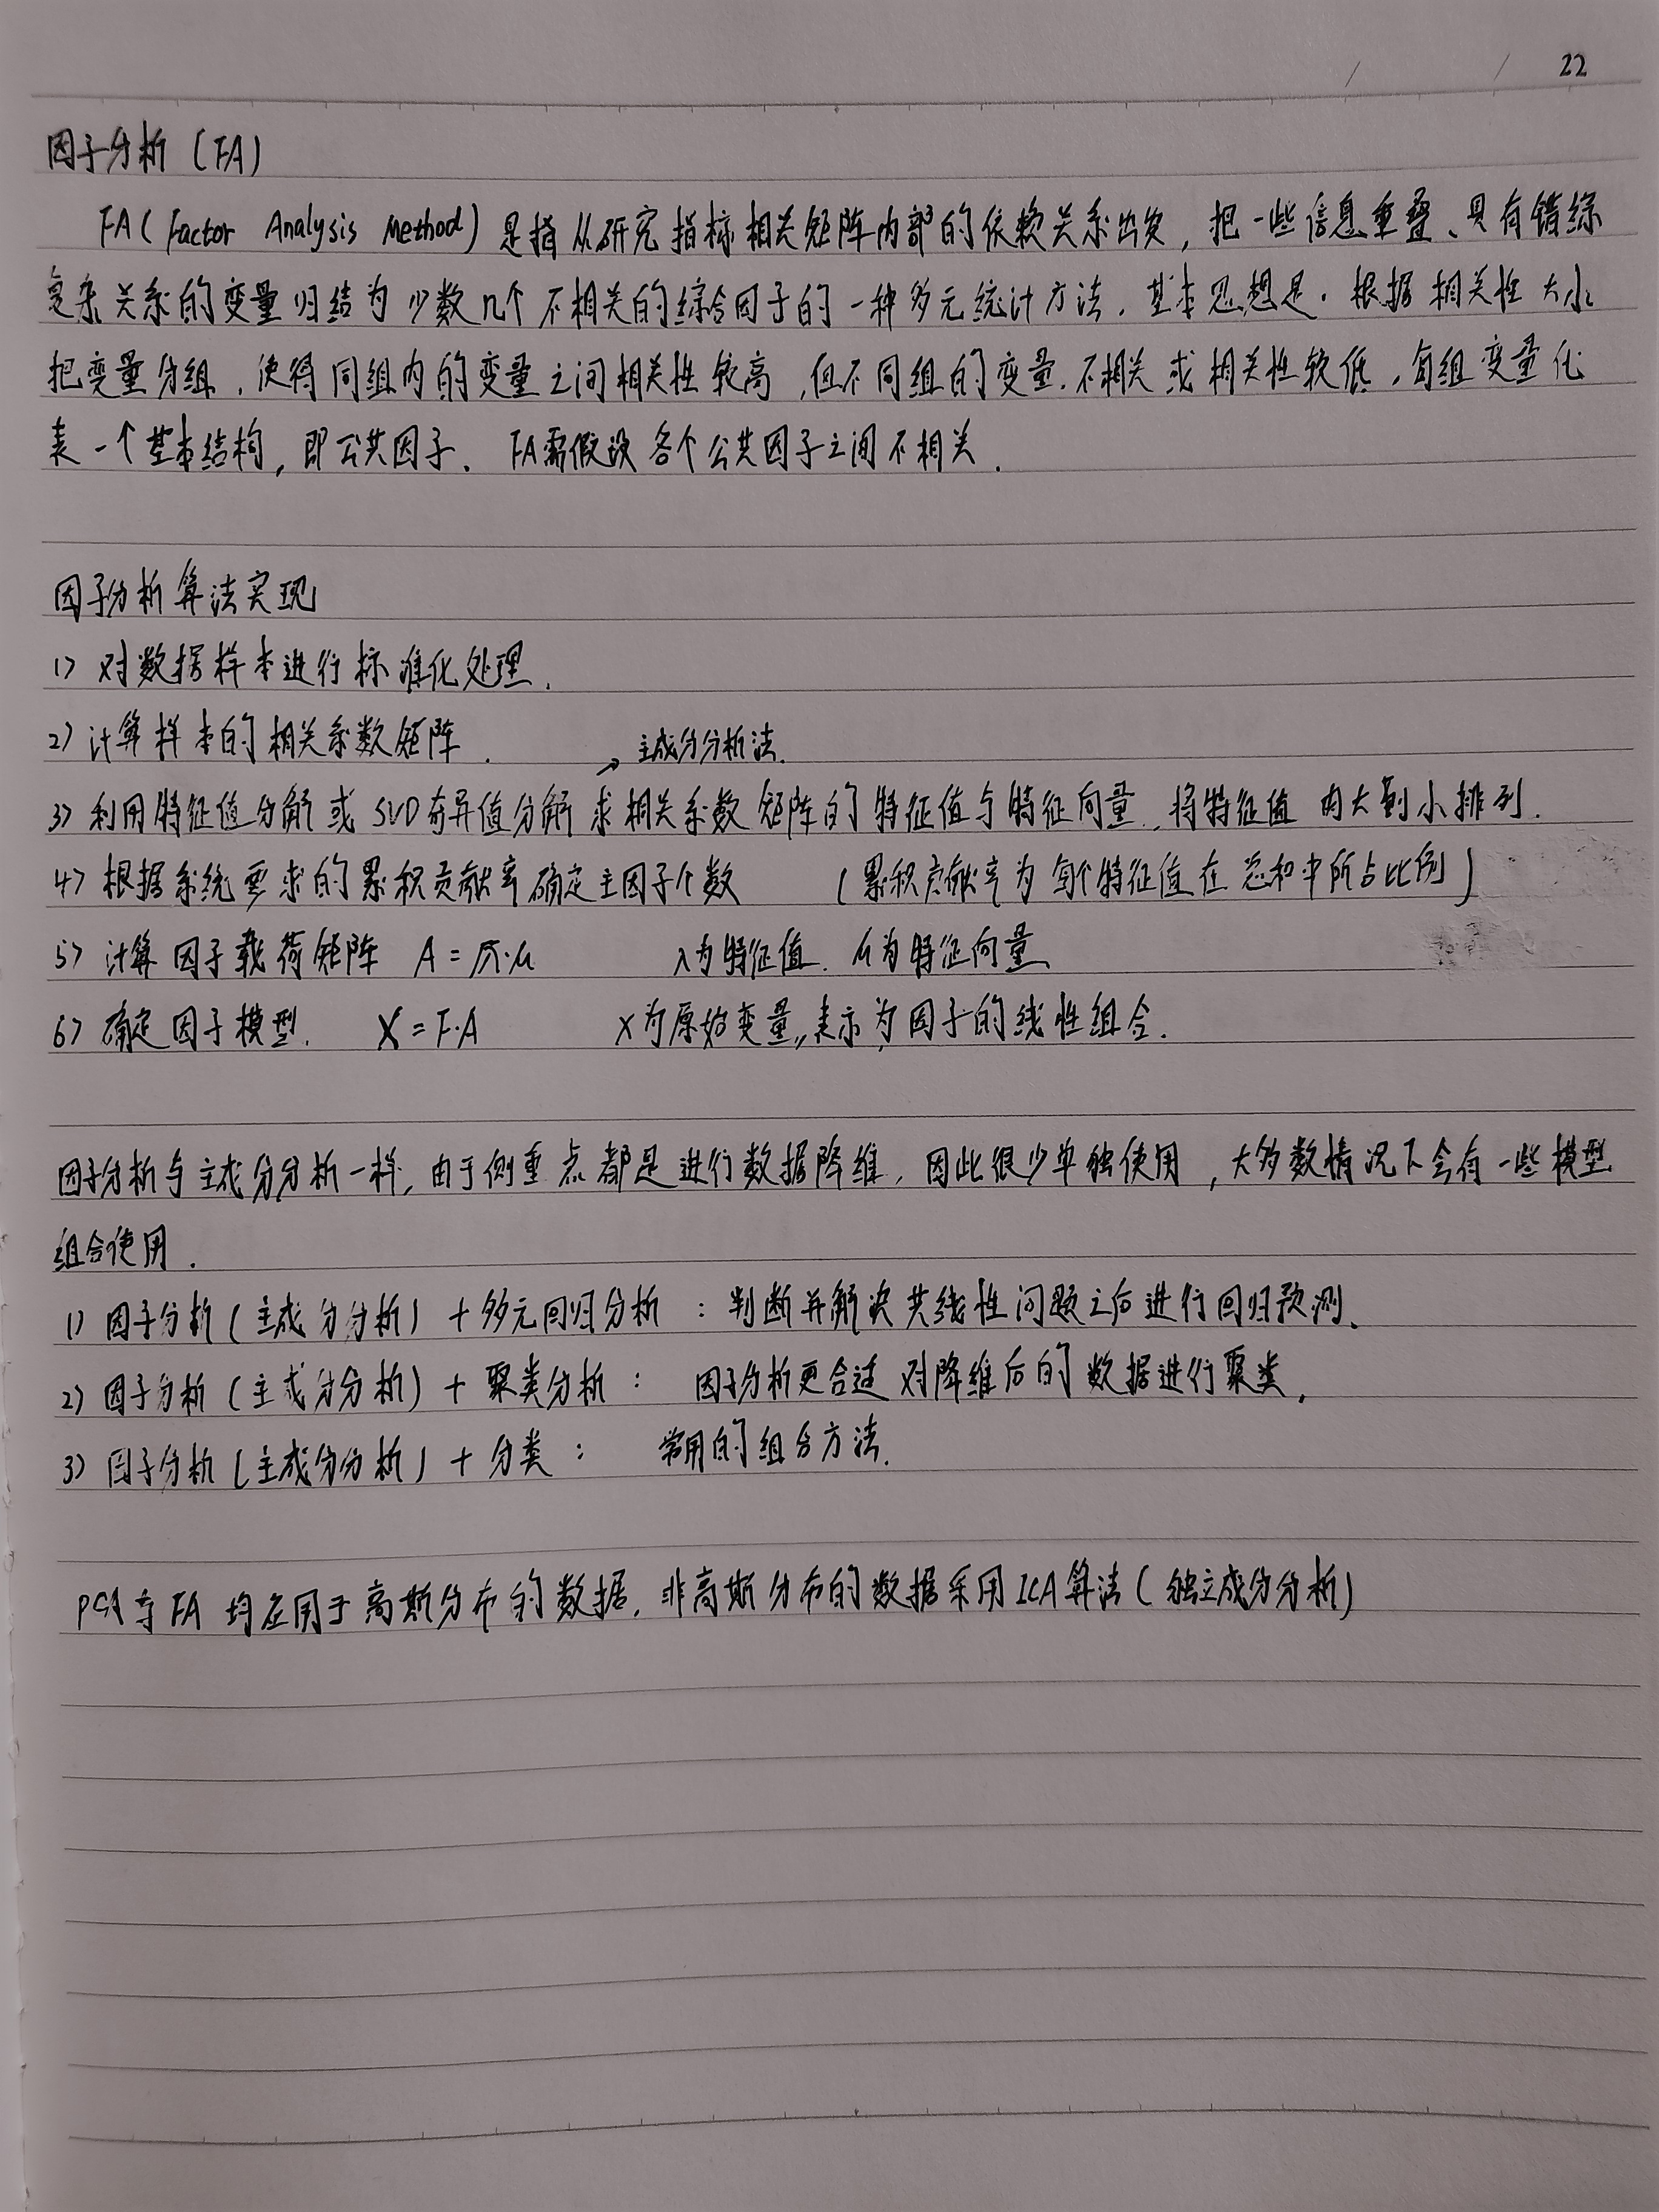 22
因子分析（FA）
FA（Factor Analysis Method）是指从研究指标相关矩阵内部的依赖关系出发，把一些信息重叠、具有错综
复杂关系的变量归结为少数几个不相关的综合因子的一种多元统计方法．基本思想是．根据相关性大小
把变量分组，使得同组内的变量之间相关性较高，但不同组的变量．不相关或相关性较低．每组变量化
表一个基本结构，即公共因子．FA需假设各个公共因子之间不相关．
因子分析算法实现
1> 对数据样本进行标准化处理．
2> 计算样本的相关系数矩阵．
→ 主成分分析法．
3> 利用特征值分解或SVD奇异值分解求相关系数矩阵的特征值与特征向量．将特征值由大到小排列．
4> 根据系统要求的累积贡献率确定主因子个数 （累积贡献率为每个特征值在总和中所占比例）
5> 计算因子载荷矩阵 A = √λ·μ λ为特征值．μ为特征向量、
6> 确定因子模型． X = F·A X为原始变量，表示为因子的线性组合．
因子分析与主成分分析一样，由于侧重点都是进行数据降维，因此很少单独使用，大多数情况下会有一些模型
组合使用．
1) 因子分析（主成分分析）+ 多元回归分析 ：判断并解决共线性问题之后进行回归预测、
2) 因子分析（主成分分析）+ 聚类分析 ： 因子分析更合适对降维后的数据进行聚类，
3) 因子分析（主成分分析）+ 分类 ： 常用的组合方法．
PCA与FA均应用于高斯分布的数据，非高斯分布的数据采用ICA算法（独立成分分析）